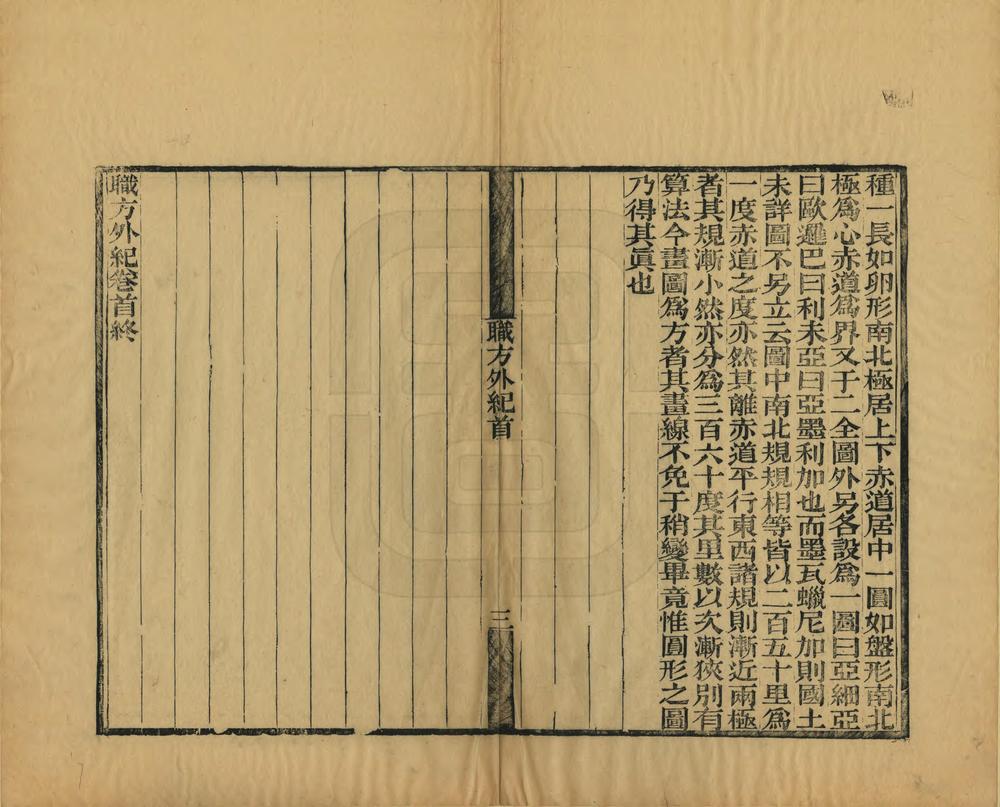 種一長如卵形南北極居上下赤道居中一圓如盤形南北
極爲心赤道爲界又于二全圖外另各設爲一圖曰亞細亞
曰歐邏巴曰利未亞曰亞墨利加也而墨瓦蠟尼加則國土
未詳圖不另立云圖中南北規規相等皆以二百五十里爲
一度赤道之度亦然其離赤道平行東西諸規則漸近兩極
者其規漸小然亦分爲三百六十度其里數以次漸狹別有
算法今畫圖爲方者其畫線不免于稍變畢竟惟圓形之圖
乃得其眞也
職方外紀首
三
職方外紀卷首終